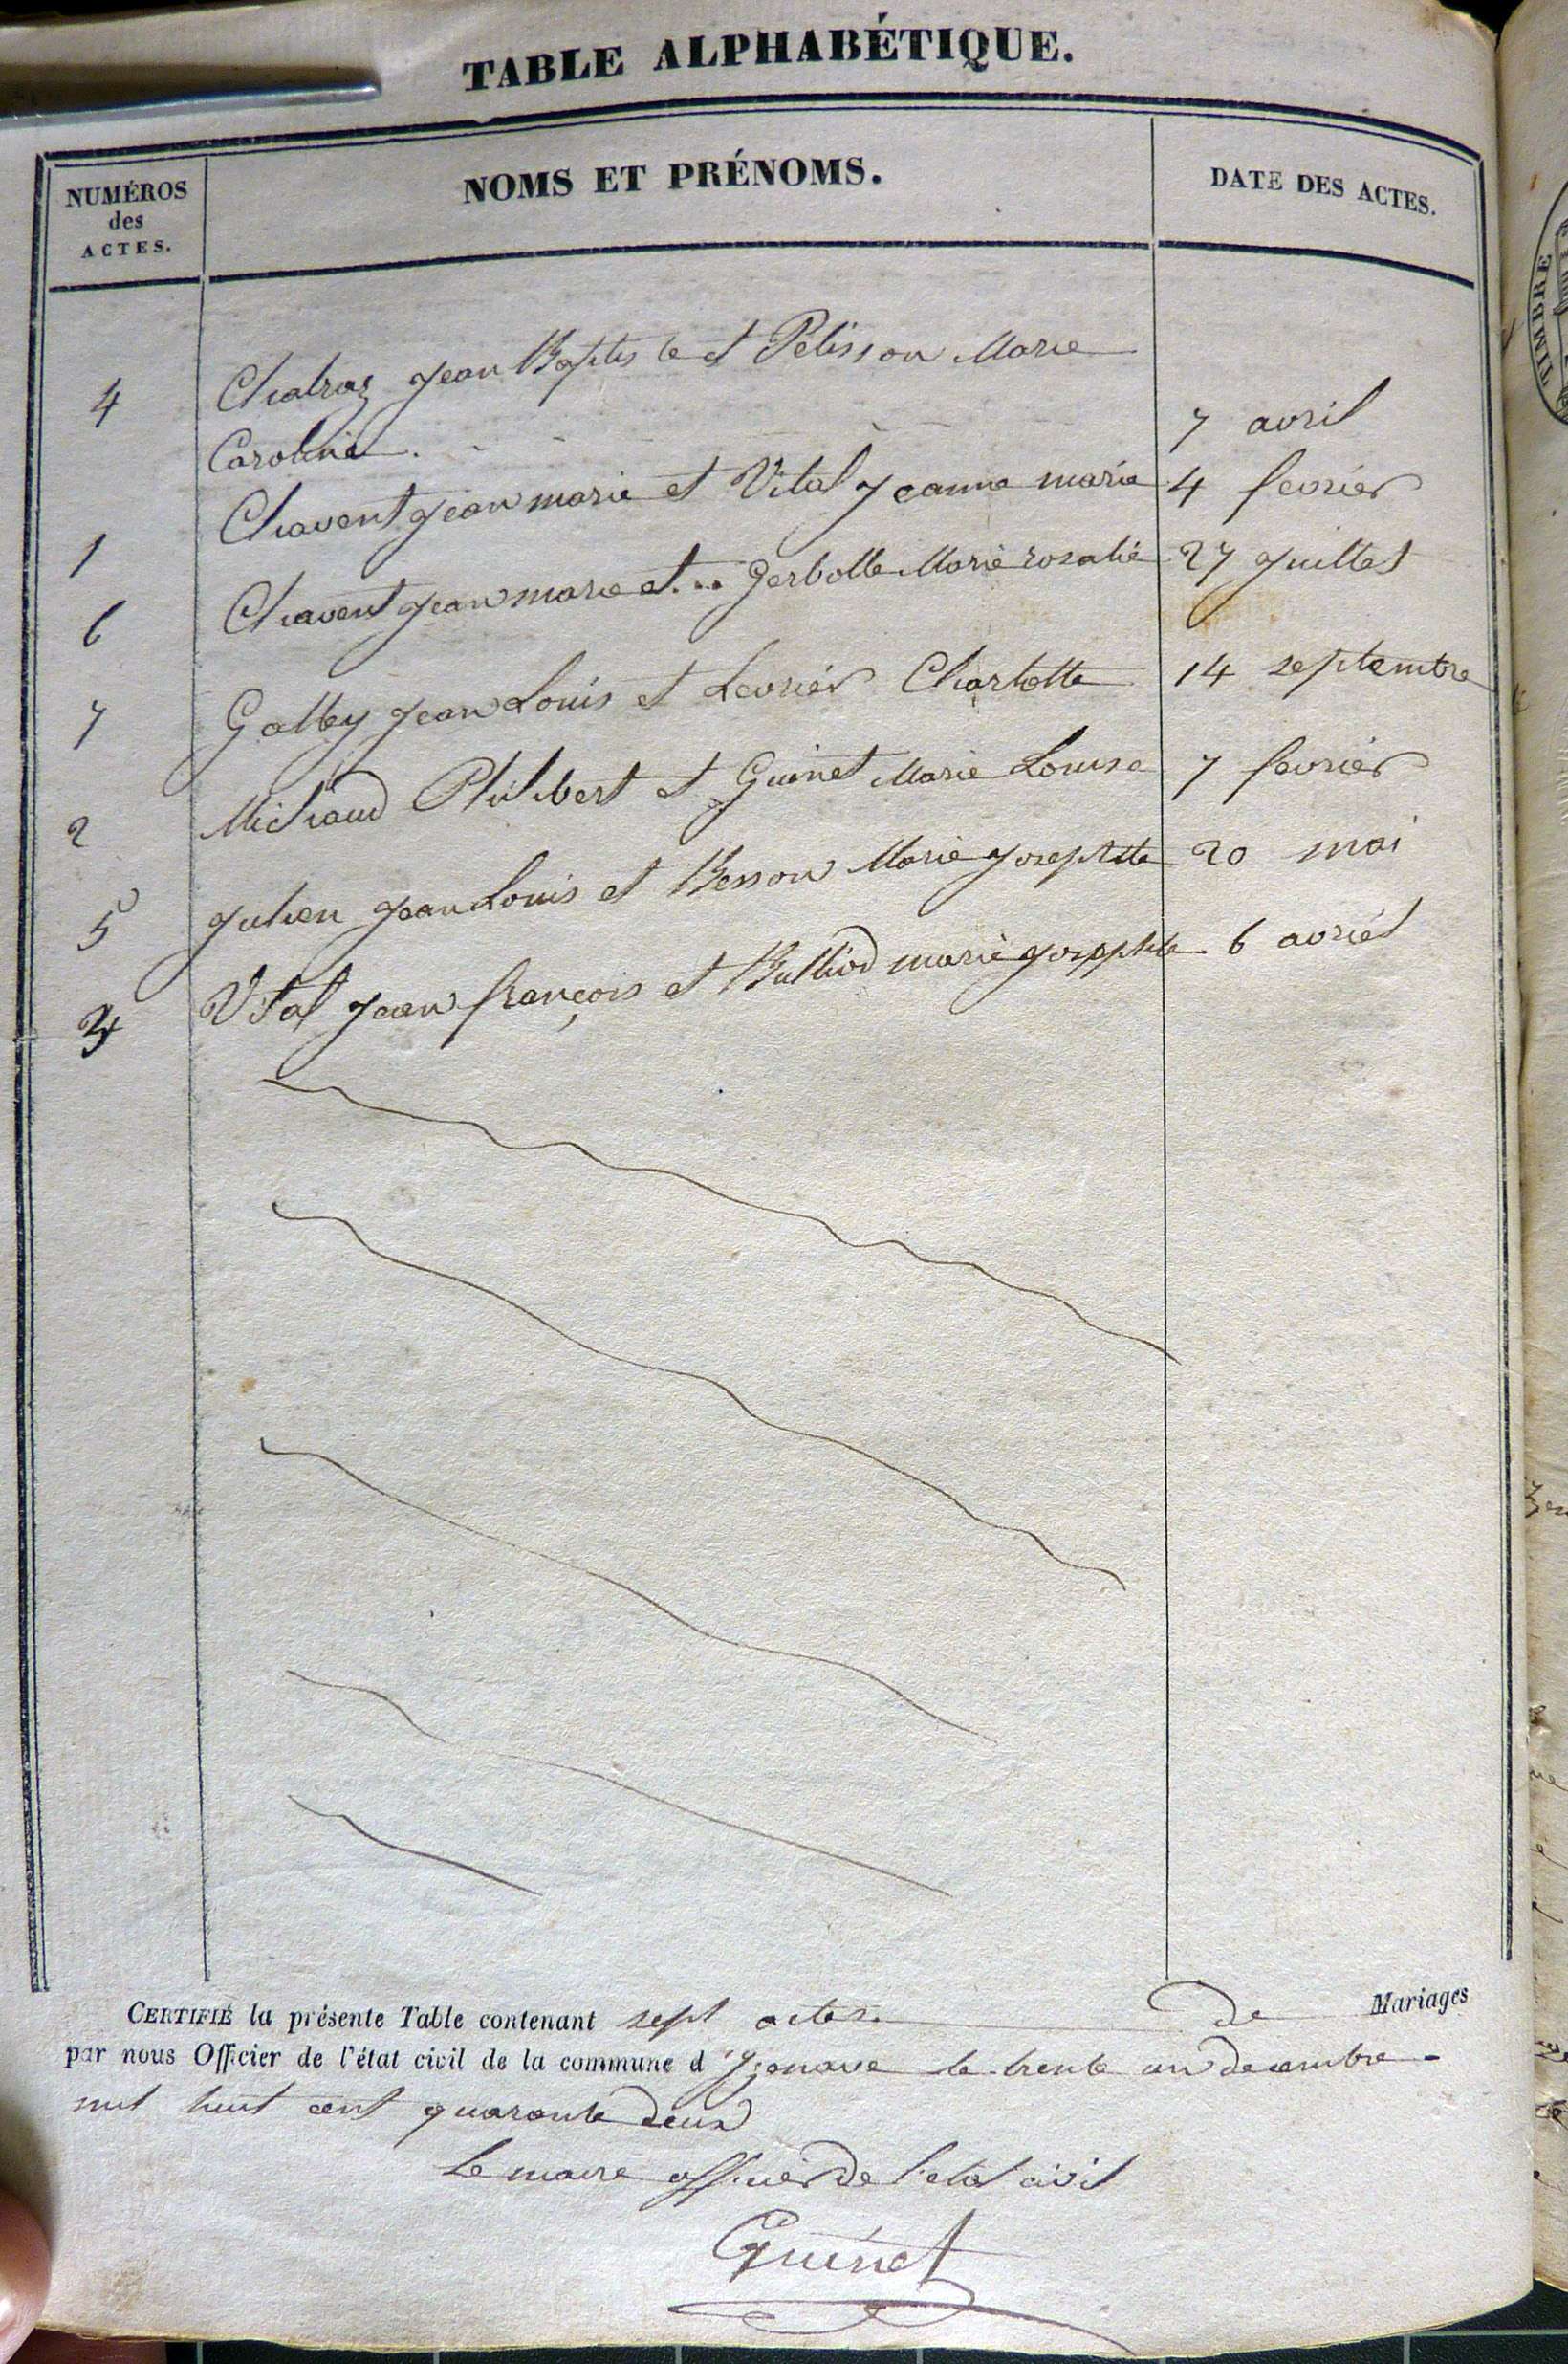 TABLE ALPHABÉTIQUE.
NUMÉROS
des
ACTES.
NOMS ET PRÉNOMS.
DATE DES ACTES.
4 Chatraz Jean Baptiste et Pelisson Marie
Caroline. 7 avril
1 Chavent Jean marie et Vital Jeanne marie 4 fevrier
6 Chavent Jean marie et... Gerbolle Marie rosalie 27 Juillet
7 Galley Jean Louis et Levrier Charlotte 14 septembre
2 Michaud Philibert et Guinet Marie Louise 7 fevrier
5 Julien Jean Louis et Besson Marie Josephte 20 mai
3 Vital Jean françois et Bulliod marie Josephte 6 avriel
CERTIFIÉ la présente Table contenant sept actes. De Mariages
par nous Officier de l'état civil de la commune d' le trente un decembre
mil huit cent quarante Deux
Le maire officier De l'etat civil
Guinet
TIMBRE